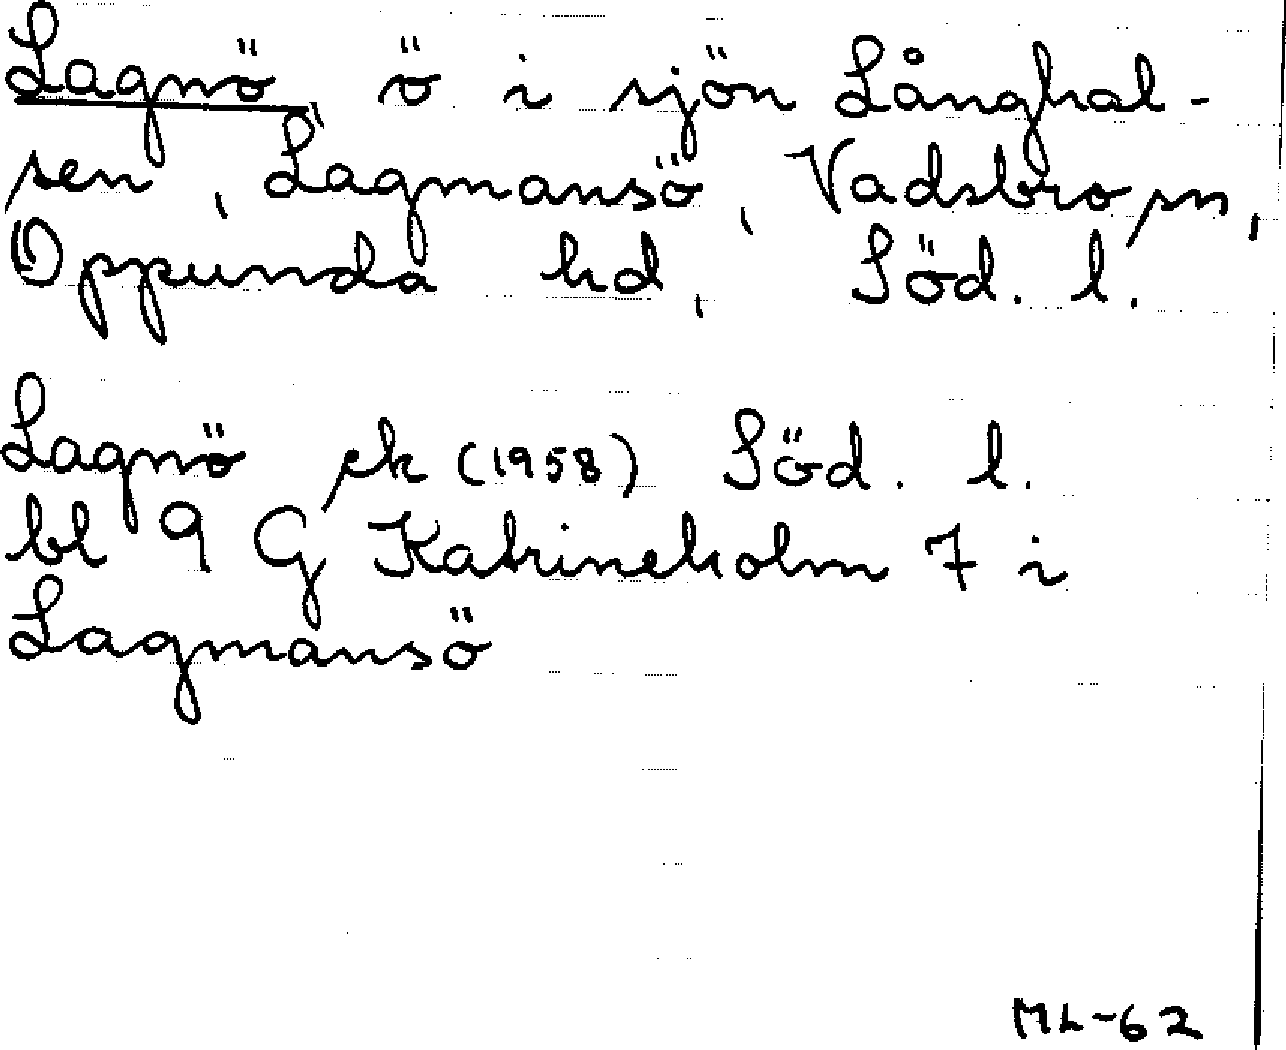 Lagnö, ö i sjön Långhal-
sen, Lagmansö, Vadsbro sn,
Oppunda hd, Söd. l.
Lagnö ek (1958) Söd. l.
bl 9 G Katrineholm 7 i
Lagmansö
ML-62